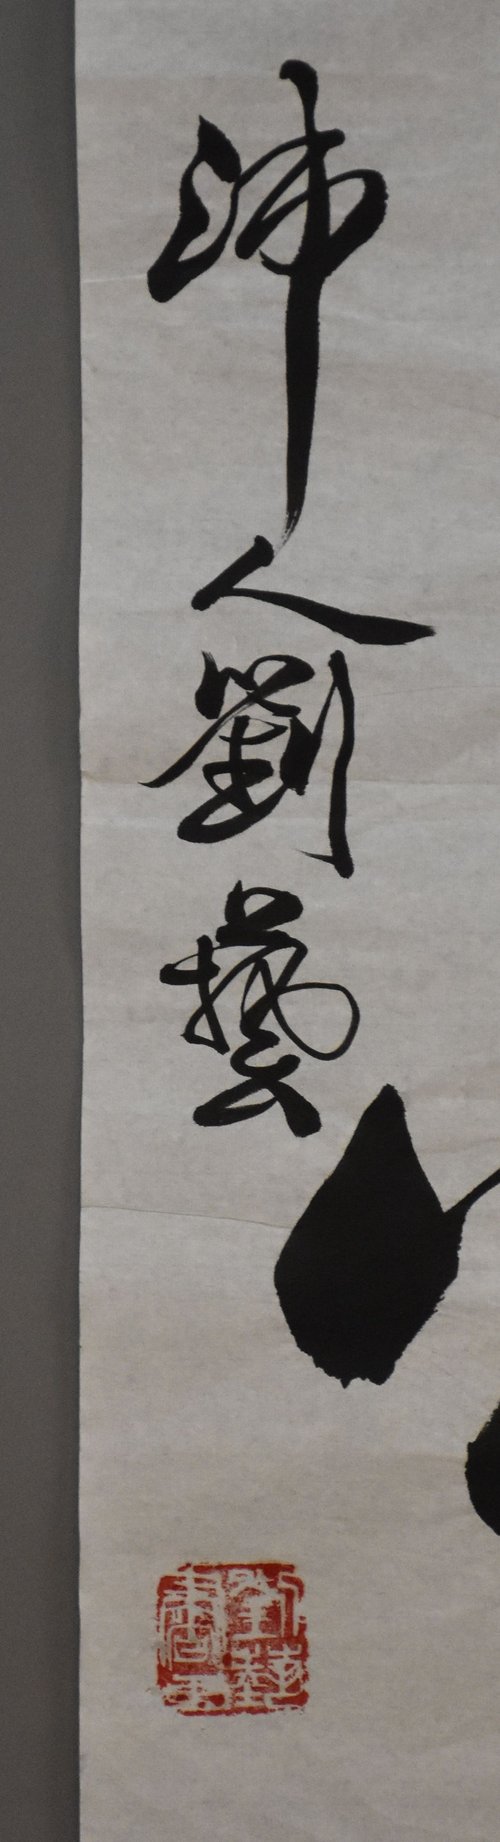 沛人劉藝
劉藝書